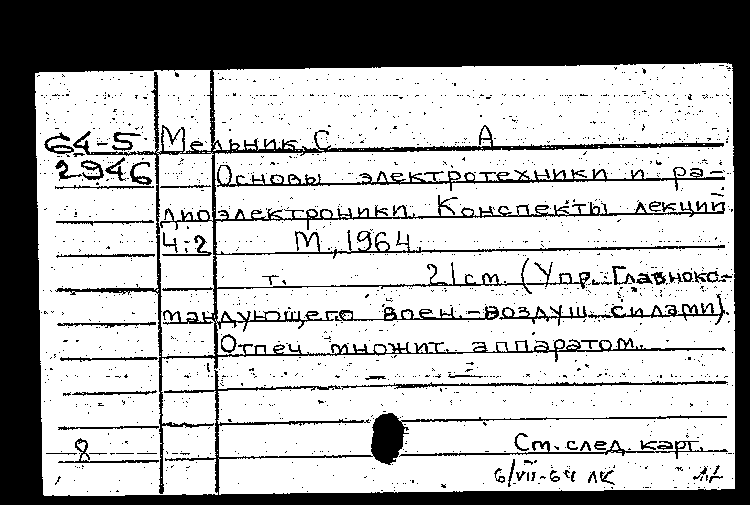 64-5 Мельник, С А
2946 Основы электротехники и ра-
диоэлектроники. Конспекты лекций
Ч.2 М., 1964.
т. 21 см. (Упр. Главноко-
мандующего воен.-воздуш. силами).
Отпеч. множит. аппаратом.
8 См. след. карт.
6/VII-64 ЛК